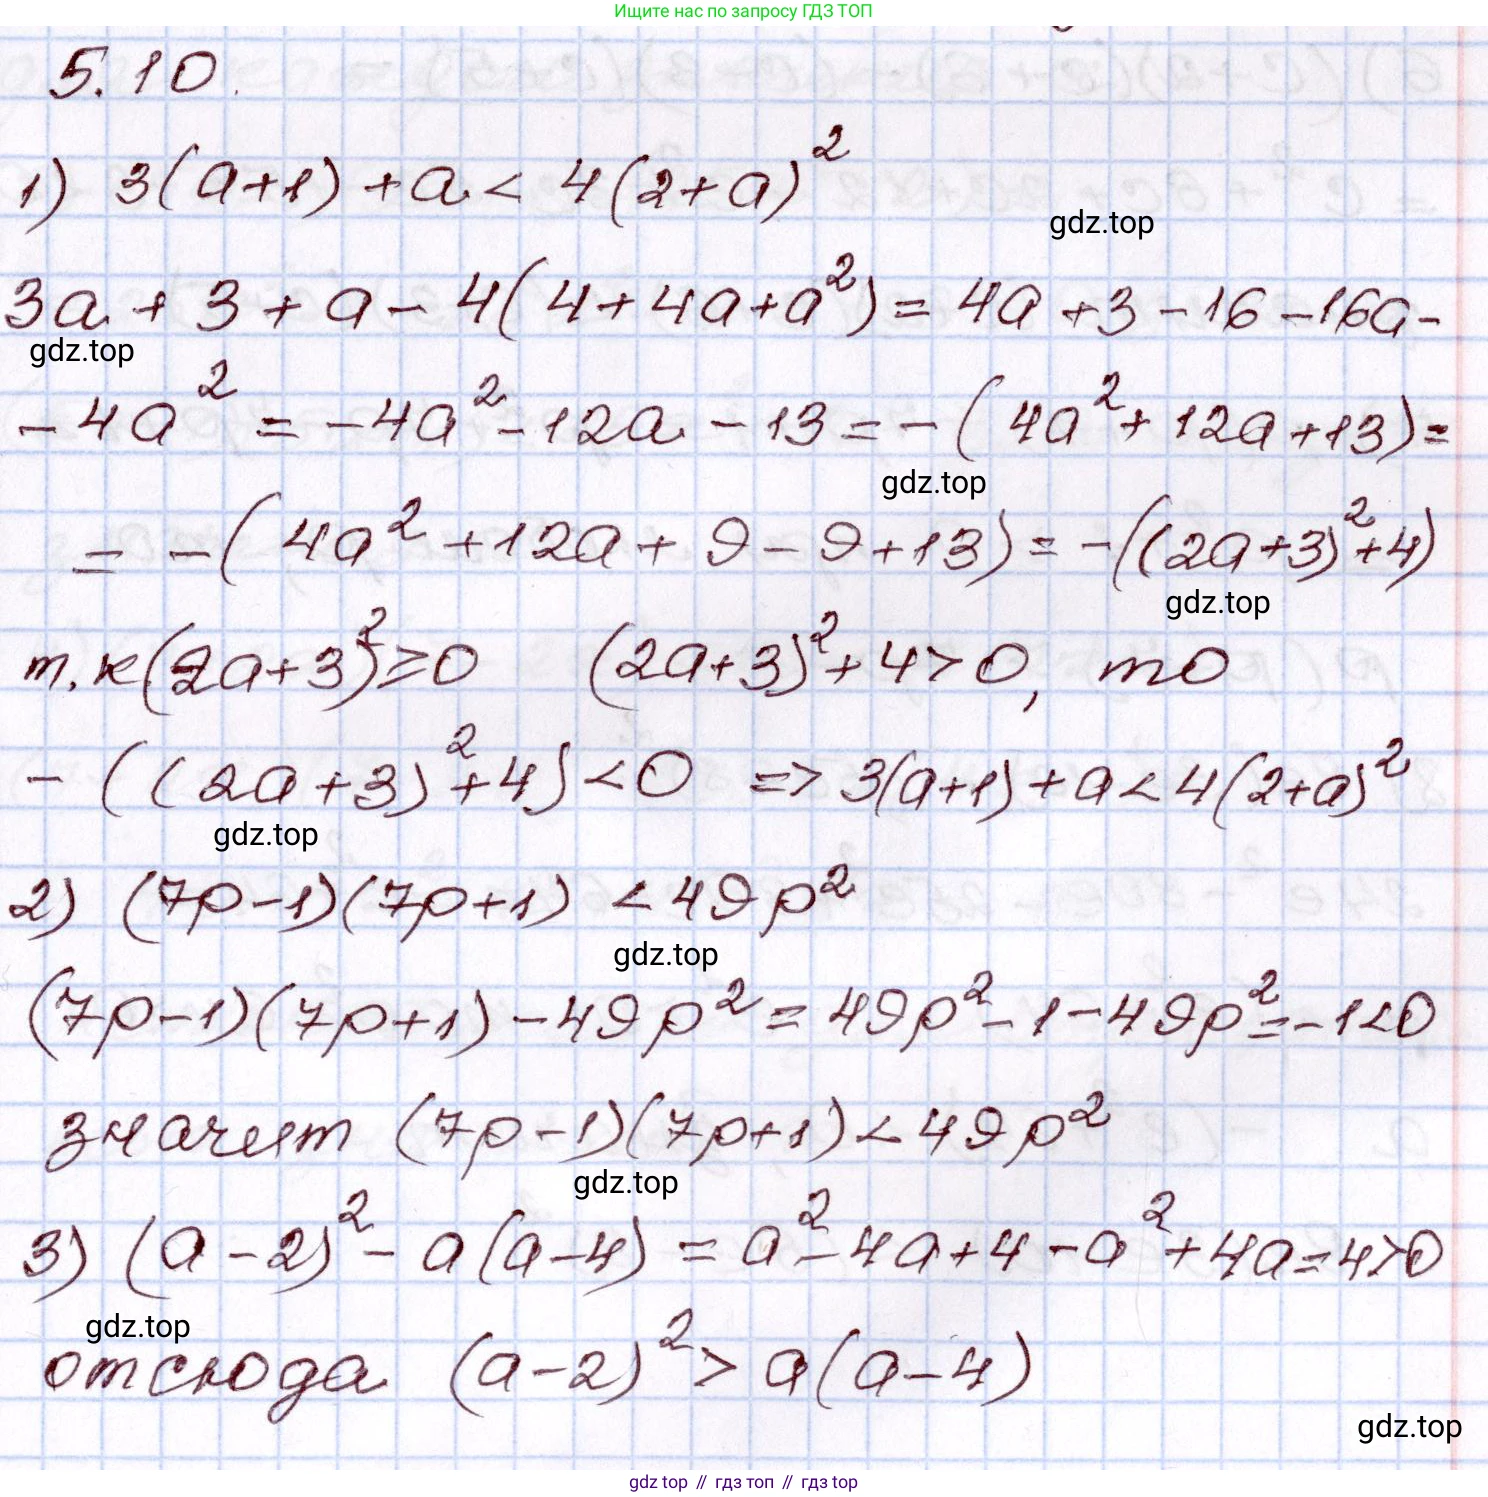 Ищите нас по запросу ГДЗ ТОП
5.10.
1) 3(a+1)+a < 4(2+a)²
gdz.top
3a+3+a-4(4+4a+a²)=4a+3-16-16a-
gdz.top
-4a²=-4a²-12a-13=-(4a²+12a+13)=
gdz.top
=-(4a²+12a+9-9+13)=-((2a+3)²+4)
gdz.top
т.к(2a+3)²≥0 (2a+3)²+4>0, то
-((2a+3)²+4)<0 => 3(a+1)+a<4(2+a)²
gdz.top
2) (7p-1)(7p+1) < 49p²
gdz.top
(7p-1)(7p+1)-49p²=49p²-1-49p²=-1<0
значит (7p-1)(7p+1)<49p²
gdz.top
3) (a-2)²-a(a-4)=a²-4a+4-a²+4a=4>0
gdz.top
отсюда (a-2)²>a(a-4)
gdz.top
gdz top // гдз топ // гдз top